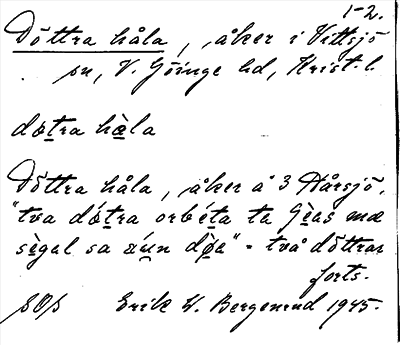 1-2.
Döttra håla, åker i Vittsjö
sn, V. Göinge hd, Krist. l.
dọ́tra hàla
Döttra håla, åker å 3 Hårsjö.
"tva dọ́tra orbéta ta Gèas mæ
sègal sa áun dòe" = två döttrar
forts.
Erik W. Bergenrud 1945.